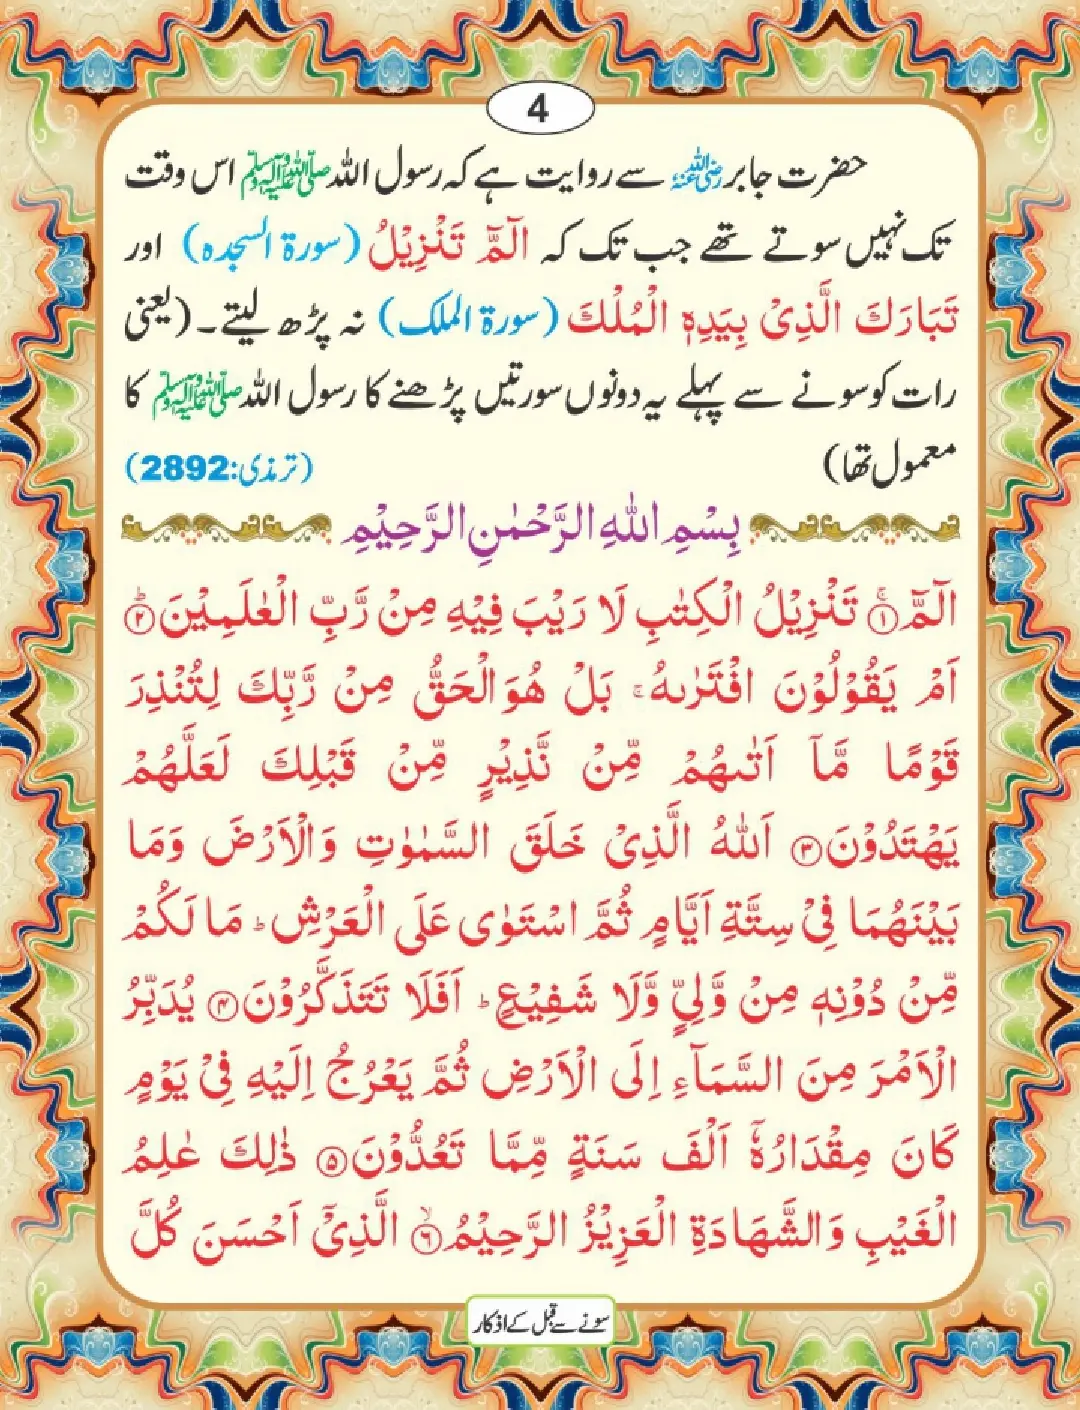 4
حضرت جابر رضی اللہ عنہ سے روایت ہے کہ رسول اللہ صلی اللہ علیہ وآلہ وسلم اس وقت
تک نہیں سوتے تھے جب تک کہ الٓمّٓ تَنْزِیْلُ (سورۃ السجدہ) اور
تَبَارَكَ الَّذِیْ بِیَدِهِ الْمُلْكَ (سورۃ الملک) نہ پڑھ لیتے۔ (یعنی
رات کو سونے سے پہلے یہ دونوں سورتیں پڑھنے کا رسول اللہ صلی اللہ علیہ وآلہ وسلم کا
معمول تھا) (ترمذی:2892)
بِسْمِ اللهِ الرَّحْمٰنِ الرَّحِیْمِ
الٓمّٓ ۚ﴿۱﴾ تَنْزِیْلُ الْكِتٰبِ لَا رَیْبَ فِیْهِ مِنْ رَّبِّ الْعٰلَمِیْنَ ؕ﴿۲﴾
اَمْ یَقُوْلُوْنَ افْتَرٰىهُ ۚ بَلْ هُوَ الْحَقُّ مِنْ رَّبِّكَ لِتُنْذِرَ
قَوْمًا مَّاۤ اَتٰىهُمْ مِّنْ نَّذِیْرٍ مِّنْ قَبْلِكَ لَعَلَّهُمْ
یَهْتَدُوْنَ ﴿۳﴾ اَللهُ الَّذِیْ خَلَقَ السَّمٰوٰتِ وَالْاَرْضَ وَمَا
بَیْنَهُمَا فِیْ سِتَّةِ اَیَّامٍ ثُمَّ اسْتَوٰی عَلَی الْعَرْشِ ؕ مَا لَكُمْ
مِّنْ دُوْنِهٖ مِنْ وَّلِیٍّ وَّلَا شَفِیْعٍ ؕ اَفَلَا تَتَذَكَّرُوْنَ ﴿۴﴾ یُدَبِّرُ
الْاَمْرَ مِنَ السَّمَآءِ اِلَی الْاَرْضِ ثُمَّ یَعْرُجُ اِلَیْهِ فِیْ یَوْمٍ
كَانَ مِقْدَارُهٗۤ اَلْفَ سَنَةٍ مِّمَّا تَعُدُّوْنَ ﴿۵﴾ ذٰلِكَ عٰلِمُ
الْغَیْبِ وَالشَّهَادَةِ الْعَزِیْزُ الرَّحِیْمُ ۙ﴿۶﴾ الَّذِیْۤ اَحْسَنَ كُلَّ
سونے سے قبل کے اذکار